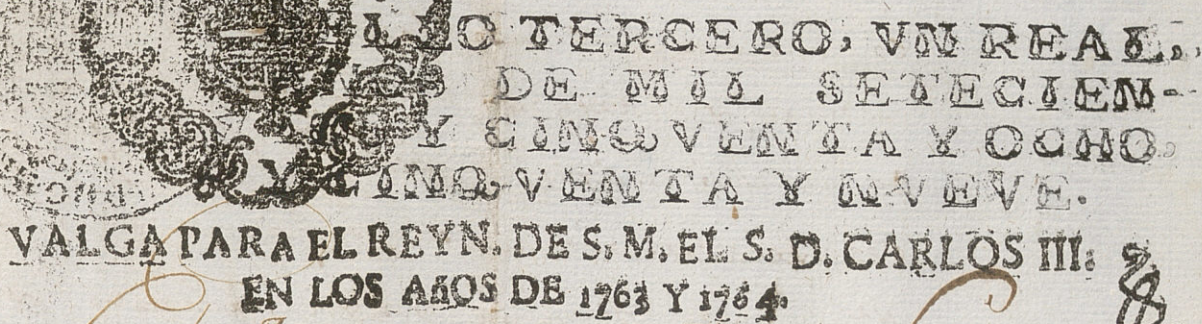 SELLO TERCERO, VN REAL,
AÑOS DE MIL SETECIEN-
TOS Y CINQVENTA Y OCHO,
Y CINQVENTA Y NVEVE.
VALGA PARA EL REYN. DE S. M. EL S. D. CARLOS III.
EN LOS AñOS DE 1763 Y 1764.